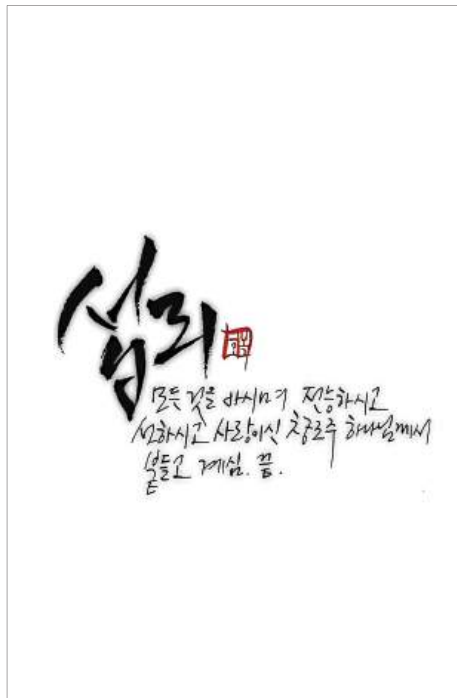 섭리
모든 것을 아시며 전능하시고
선하시고 사랑이신 창조주 하나님께서
붙들고 계심. 끝.